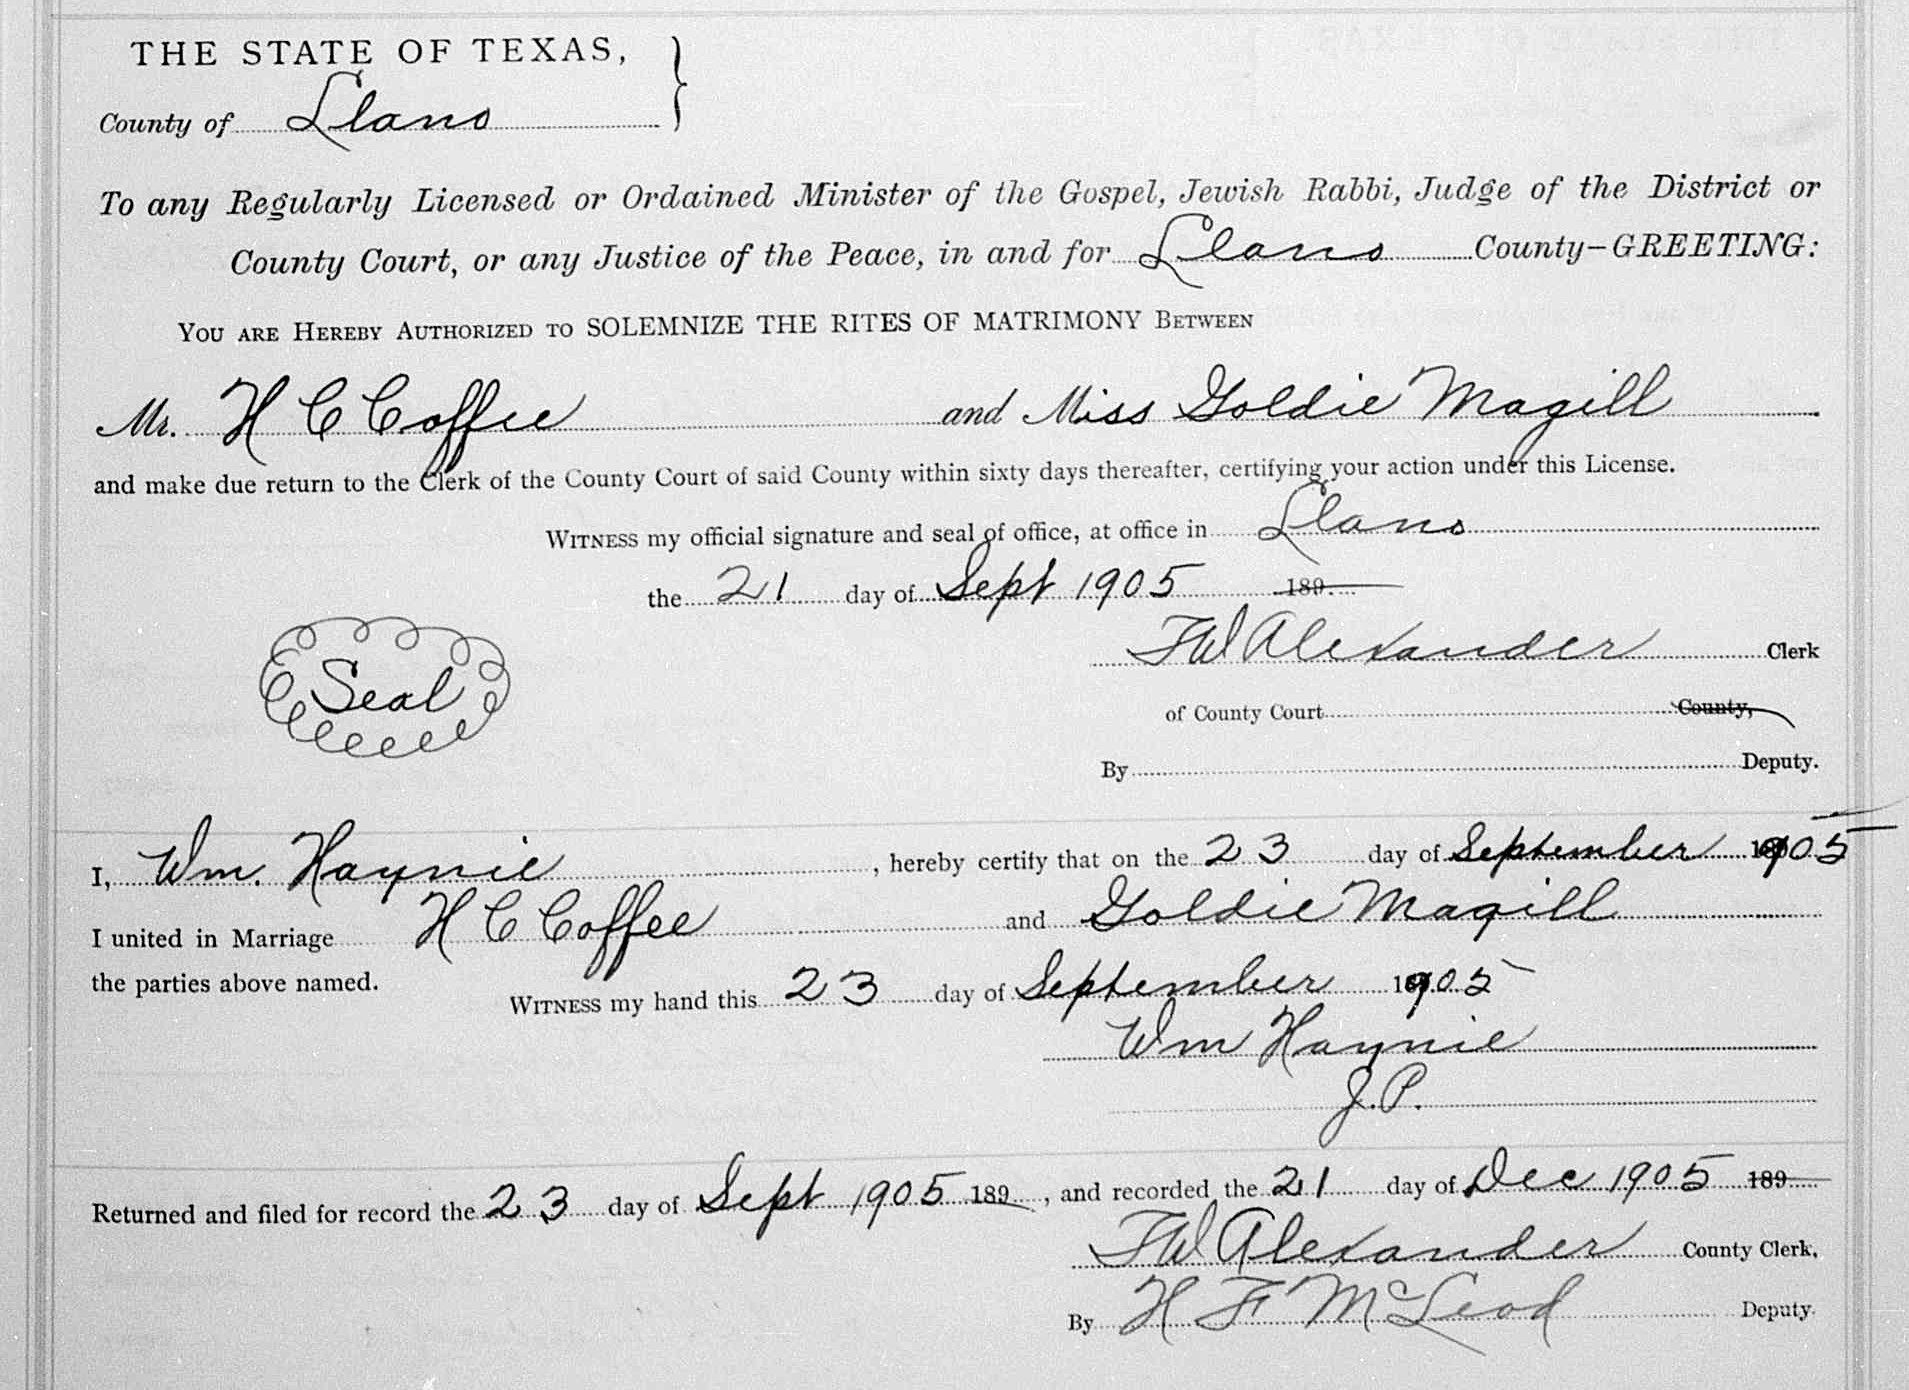 THE STATE OF TEXAS,
County of Llano
To any Regularly Licensed or Ordained Minister of the Gospel, Jewish Rabbi, Judge of the District or
County Court, or any Justice of the Peace, in and for Llano County—GREETING:
YOU ARE HEREBY AUTHORIZED TO SOLEMNIZE THE RITES OF MATRIMONY BETWEEN
Mr. H C Coffee and Miss Goldie Magill
and make due return to the Clerk of the County Court of said County within sixty days thereafter, certifying your action under this License.
WITNESS my official signature and seal of office, at office in Llano
the 21 day of Sept 1905 189
FW Alexander Clerk
Seal
of County Court County,
By Deputy.
I, Wm. Haynie, hereby certify that on the 23 day of September 1905
I united in Marriage H C Coffee and Goldie Magill
the parties above named.
WITNESS my hand this 23 day of September 1905
Wm Haynie
J.P.
Returned and filed for record the 23 day of Sept 1905 189, and recorded the 21 day of Dec 1905 189
FW Alexander County Clerk,
By H F McLeod Deputy.